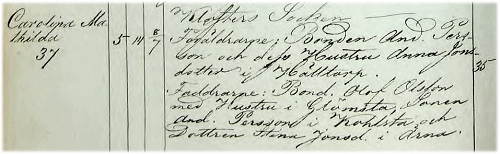 Klosters Socken
Carolina Ma-
thilda 5 14 8/7 Föräldrarne: Bonden And. Pers-
37 son och dess Hustru Anna Jons-
dotter i Hålltorp. 35
Faddrarne: Bond. Olof Olsson
med Hustru i Glömsta, Sonen
And. Persson i Kohlsta och
Dottren Stina Jonsd. i Ärna.